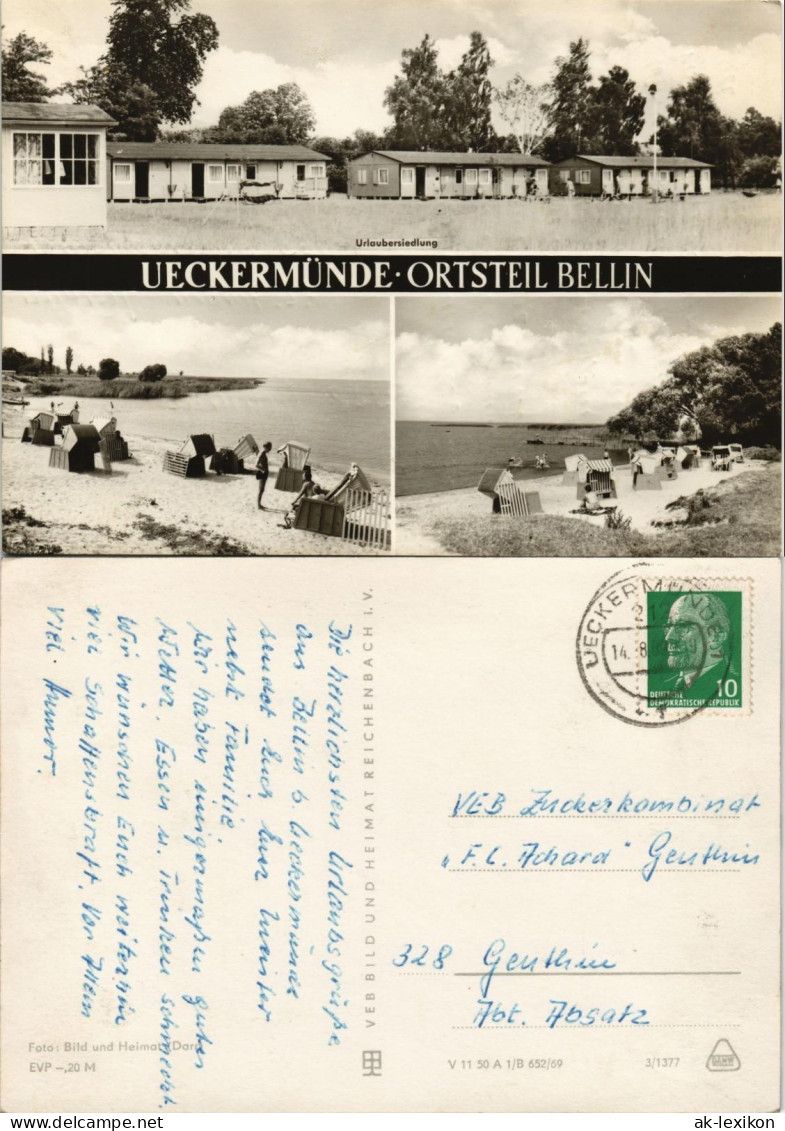 Urlaubersiedlung
UECKERMÜNDE · ORTSTEIL BELLIN
Die herzlichsten Urlaubsgrüße
aus Bellin b. Ueckermünde
sendet Euch Euer Meister
nebst Familie
Wir haben einigermaßen gutes
Wetter. Essen u. Trinken schmeckt.
Wir wünschen Euch weiterhin
viel Schaffenskraft. Vor Allem
viel Humor.
Foto: Bild und Heimat (Darr)
EVP -,20 M
VEB BILD UND HEIMAT REICHENBACH I. V.
UECKERMÜNDE 1
14. 8.
DEUTSCHE
DEMOKRATISCHE REPUBLIK
10
VEB Zuckerkombinat
"F. C. Achard" Genthin
328 Genthin
Abt. Absatz
V 11 50 A 1/B 652/69
3/1377
ak-lexikon